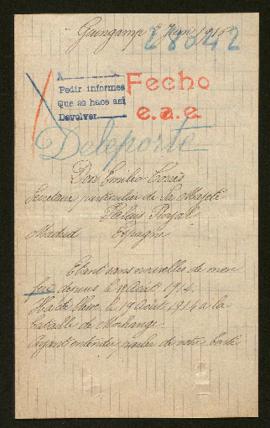 Guingamp 8 Juin 1915
28042
A
Pedir informes
Que se hace así
Devolver
Fecho
e.a.e.
Deleporte
Don Emilio Torres
Secrétaire particulier de Sa Majesté
Palais Royal
Madrid Espagne
Etant sans nouvelles de mon
fils depuis le 19 Août 1914.
le 19 Août 1914 a la
bataille de Morhange.
Ayant entendu parler de votre